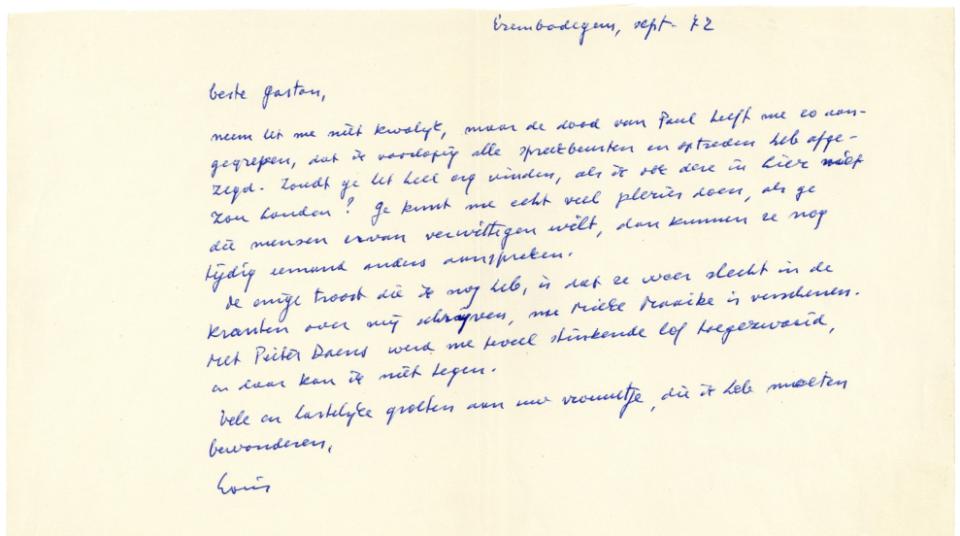 Erembodegem, sept- 72
beste gaston,
neem het me niet kwalijk, maar de dood van Paul heeft me zo aan-
gegrepen, dat ik voorlopig alle spreekbeurten en optreden heb afge-
zegd. Zoudt ge het heel erg vinden, als ik ook deze in hier niet
zou houden? Ge kunt me echt veel plezier doen, als ge
die mensen ervan verwittigen wilt, dan kunnen ze nog
tijdig iemand anders aanspreken.
De enige troost die ik nog heb, is dat ze weer slecht in de
kranten over mij schrijven, nu Mieke Maaike is verschenen.
Met Pieter Daens werd me teveel stinkende lof toegezwaaid,
en daar kan ik niet tegen.
Vele en hartelijke groeten aan uw vrouwtje, die ik heb moeten
bewonderen,
Louis